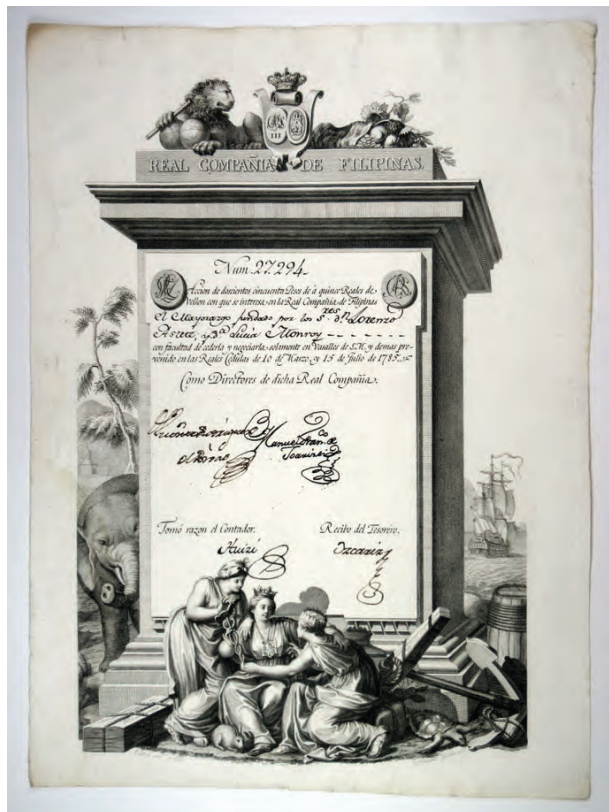 REAL COMPAÑIA DE FILIPINAS.
III
Num. 27.294.
Accion de doscientos cincuenta Pesos de à quince Reales de
Vellon con que se interesa en la Real Compañia de Filipinas
el Mayorazgo fundado por los S.res d.n Lorenzo
y D.a Luisa Monroy
con facultad de cederla y negociarla solamente en Vasallos de S.M. y demas pre-
venido en las Reales Cédulas de 10 de Marzo y 15 de Julio de 1785.
Como Directores de dicha Real Compañia.
Manuel Fran.co de
Tomó razon el Contador.
Recibo del Tesorero.